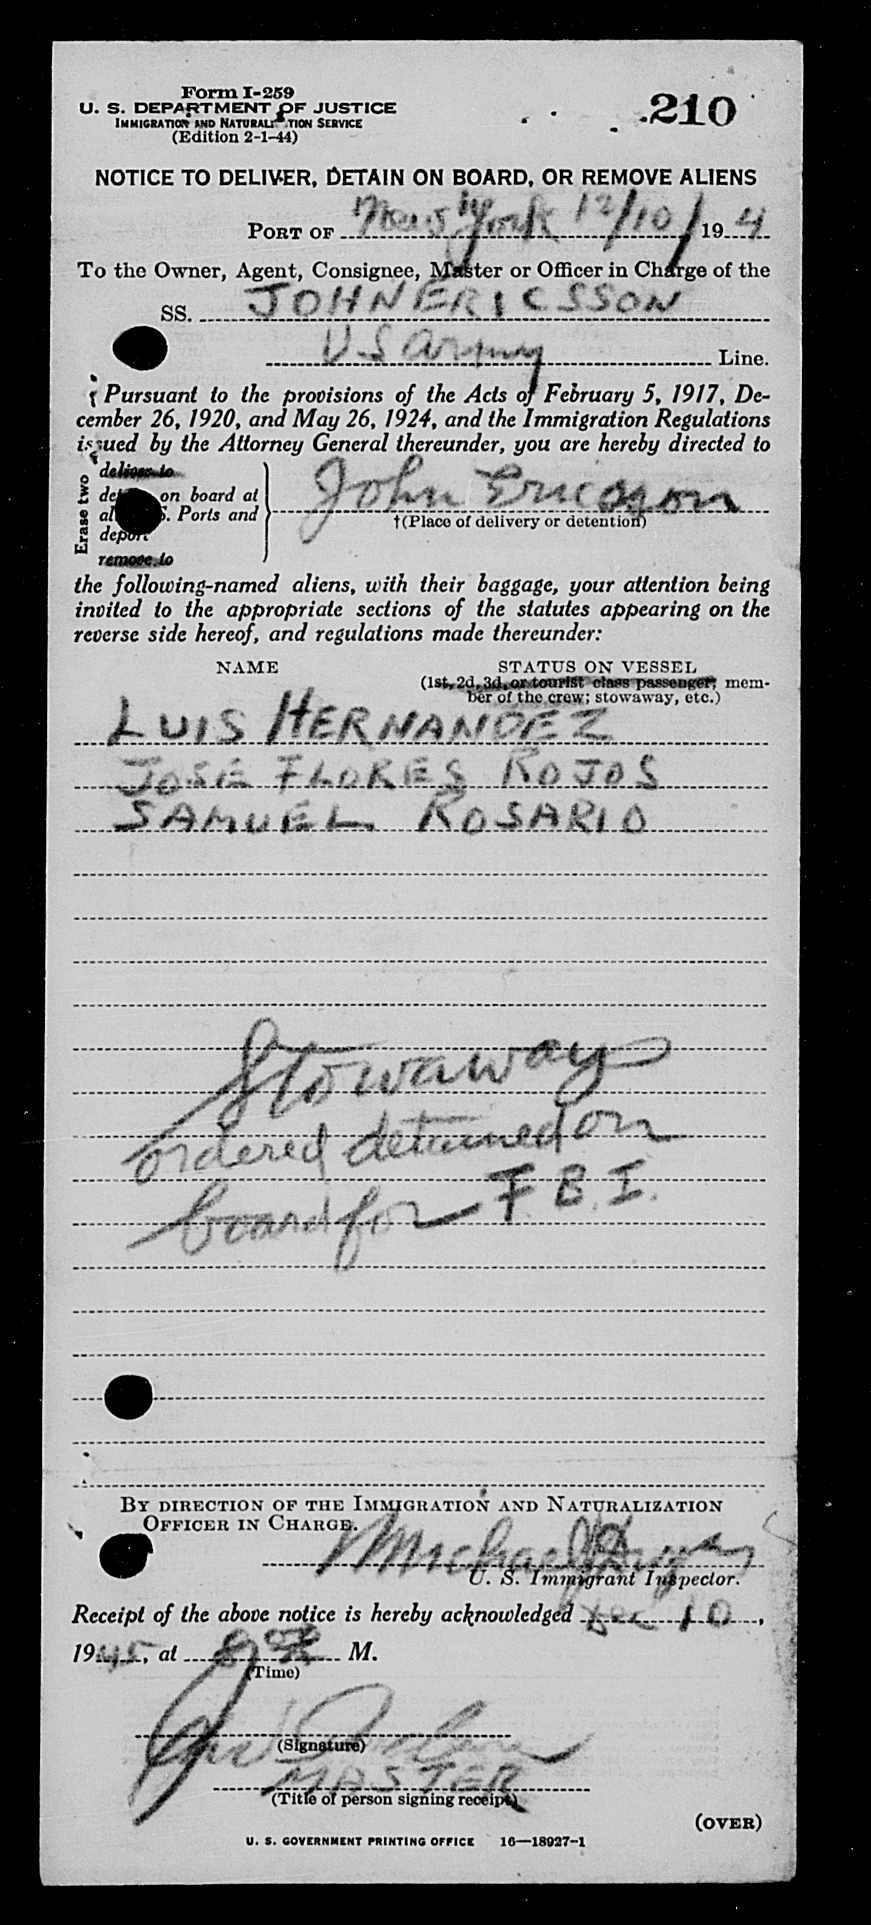 Form I-259
U. S. DEPARTMENT OF JUSTICE
IMMIGRATION AND NATURALIZATION SERVICE
(Edition 2-1-44)
210
NOTICE TO DELIVER, DETAIN ON BOARD, OR REMOVE ALIENS
PORT OF New York 12/10/ 19 4
To the Owner, Agent, Consignee, Master or Officer in Charge of the
SS. JOHN ERICSSON
U S Army Line.
Pursuant to the provisions of the Acts of February 5, 1917, De-
cember 26, 1920, and May 26, 1924, and the Immigration Regulations
issued by the Attorney General thereunder, you are hereby directed to
Erase two
deliver to
on board at
Ports and
deport
remove to
John Ericsson
†(Place of delivery or detention)
the following-named aliens, with their baggage, your attention being
invited to the appropriate sections of the statutes appearing on the
reverse side hereof, and regulations made thereunder:
NAME STATUS ON VESSEL
(1st, 2d, 3d, or tourist class passenger; mem-
ber of the crew; stowaway, etc.)
LUIS HERNANDEZ
JOSE FLORES ROJOS
SAMUEL ROSARIO
Stowaways
ordered detained on
board for F.B.I.
BY DIRECTION OF THE IMMIGRATION AND NATURALIZATION
OFFICER IN CHARGE.
Michael
U. S. Immigrant Inspector.
Receipt of the above notice is hereby acknowledged Dec 10,
1945, at M.
(Time)
(Signature)
MASTER
(Title of person signing receipt)
(OVER)
U. S. GOVERNMENT PRINTING OFFICE 16—18927-1